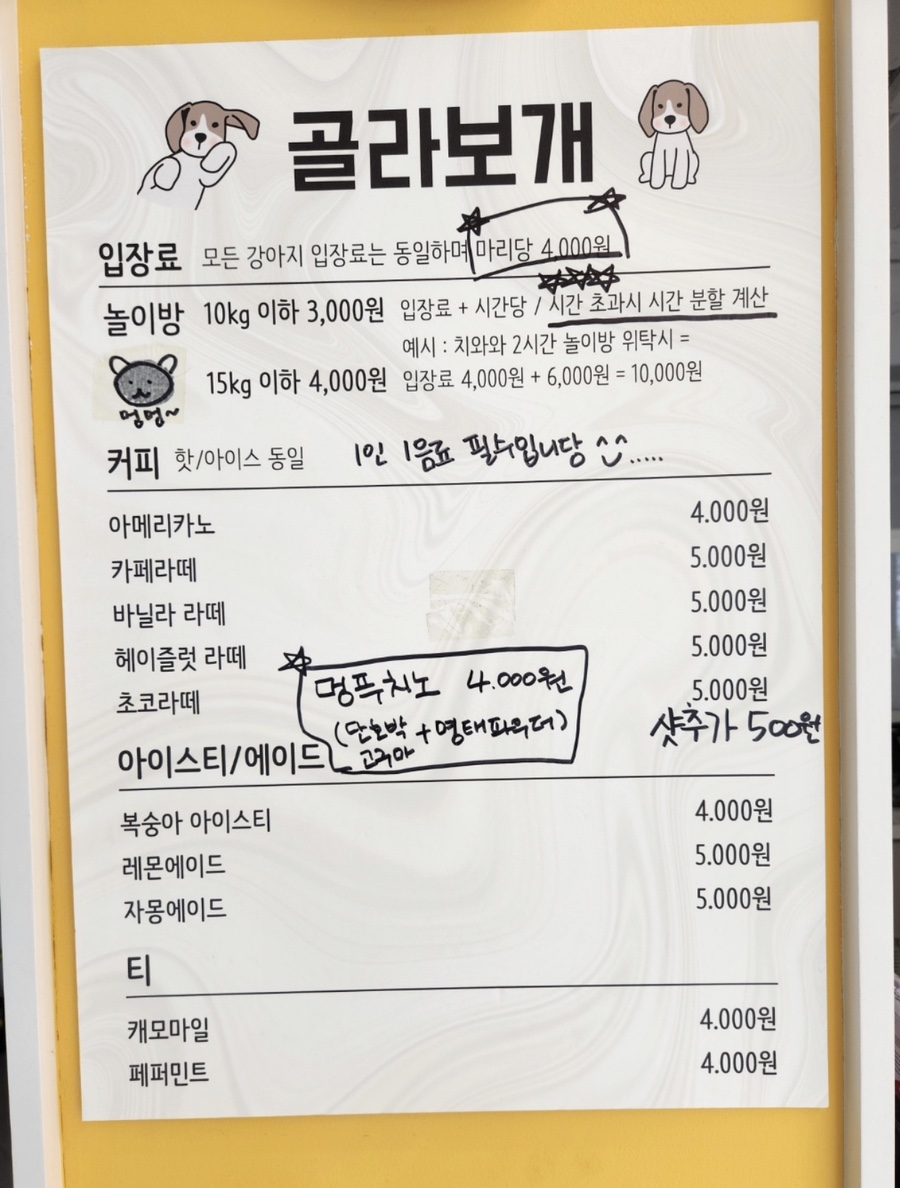 골라보개
입장료 모든 강아지 입장료는 동일하며 마리당 4,000원
놀이방 10kg 이하 3,000원 입장료 + 시간당 / 시간 초과시 시간 분할 계산
예시 : 치와와 2시간 놀이방 위탁시 =
15kg 이하 4,000원 입장료 4,000원 + 6,000원 = 10,000원
멍멍~
커피 핫/아이스 동일 1인 1음료 필수입니당 ^^.....
아메리카노 4.000원
카페라떼 5.000원
바닐라 라떼 5.000원
헤이즐럿 라떼 5.000원
초코라떼 5.000원
멍푸치노 4.000원
(단호박 + 명태파우더)
고구마
샷추가 500원
아이스티/에이드
복숭아 아이스티 4.000원
레몬에이드 5.000원
자몽에이드 5.000원
티
캐모마일 4.000원
페퍼민트 4.000원